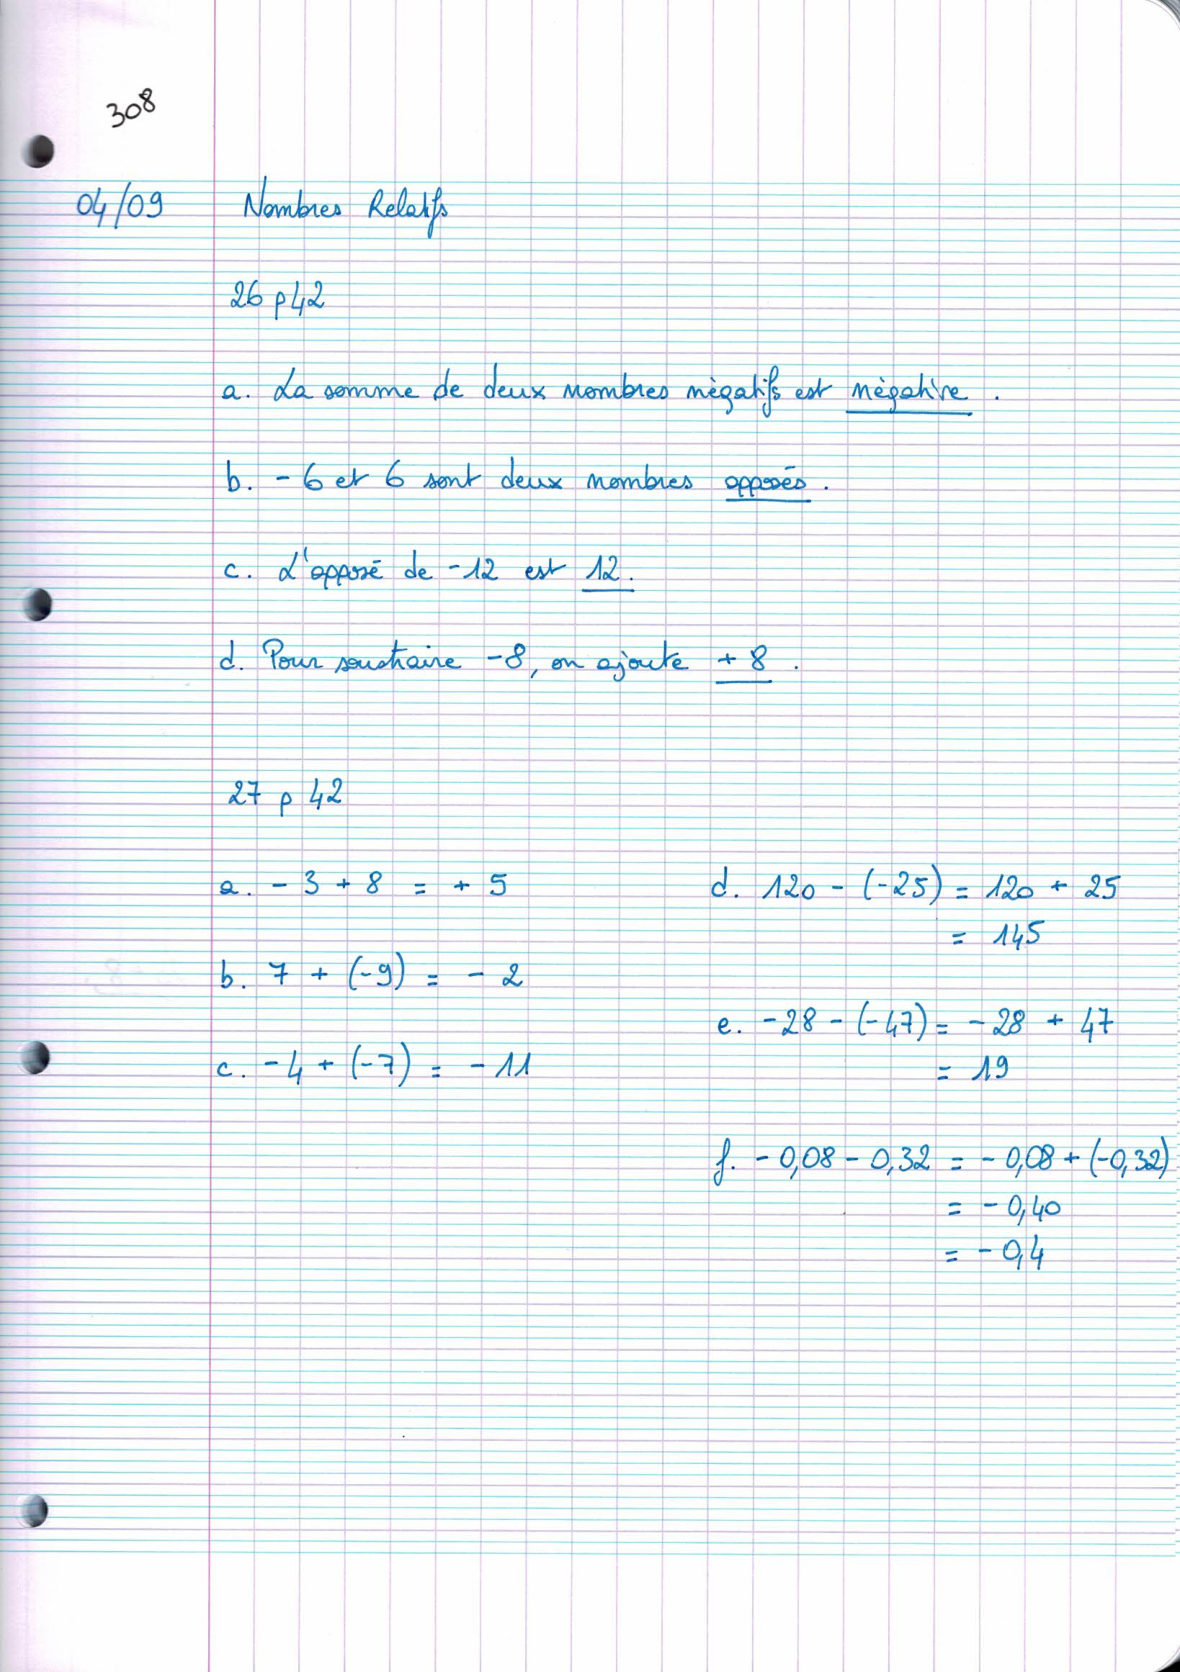 308
04/09 Nombres Relatifs
26 p42
a. La somme de deux nombres négatifs est négative.
b. -6 et 6 sont deux nombres opposés.
c. L'opposé de -12 est 12.
d. Pour soustraire -8, on ajoute +8.
27 p 42
a. -3 + 8 = +5
b. 7 + (-9) = -2
c. -4 + (-7) = -11
d. 120 - (-25) = 120 + 25
= 145
e. -28 - (-47) = -28 + 47
= 19
f. -0,08 - 0,32 = -0,08 + (-0,32)
= -0,40
= -0,4